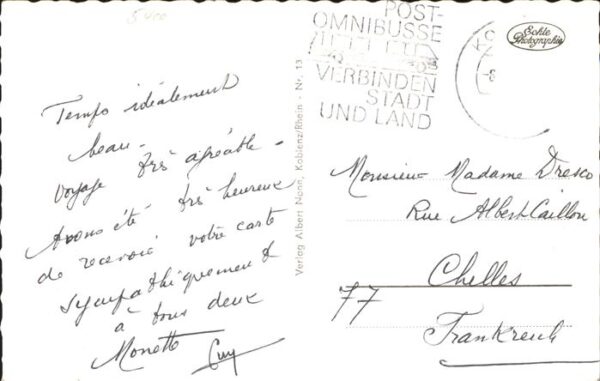 5400
Temps idéalement
beau -
voyage très agréable -
Avons été très heureux
de recevoir votre carte
sympathiquement
à tous deux
Monette Guy
Verlag Albert Nonn, Koblenz/Rhein - Nr. 13
POST-
OMNIBUSSE
VERBINDEN
STADT
UND LAND
KO
-8
Echte
Photographie
Monsieur Madame Dresco
Rue Albert Caillou
Chelles
77
Frankreich